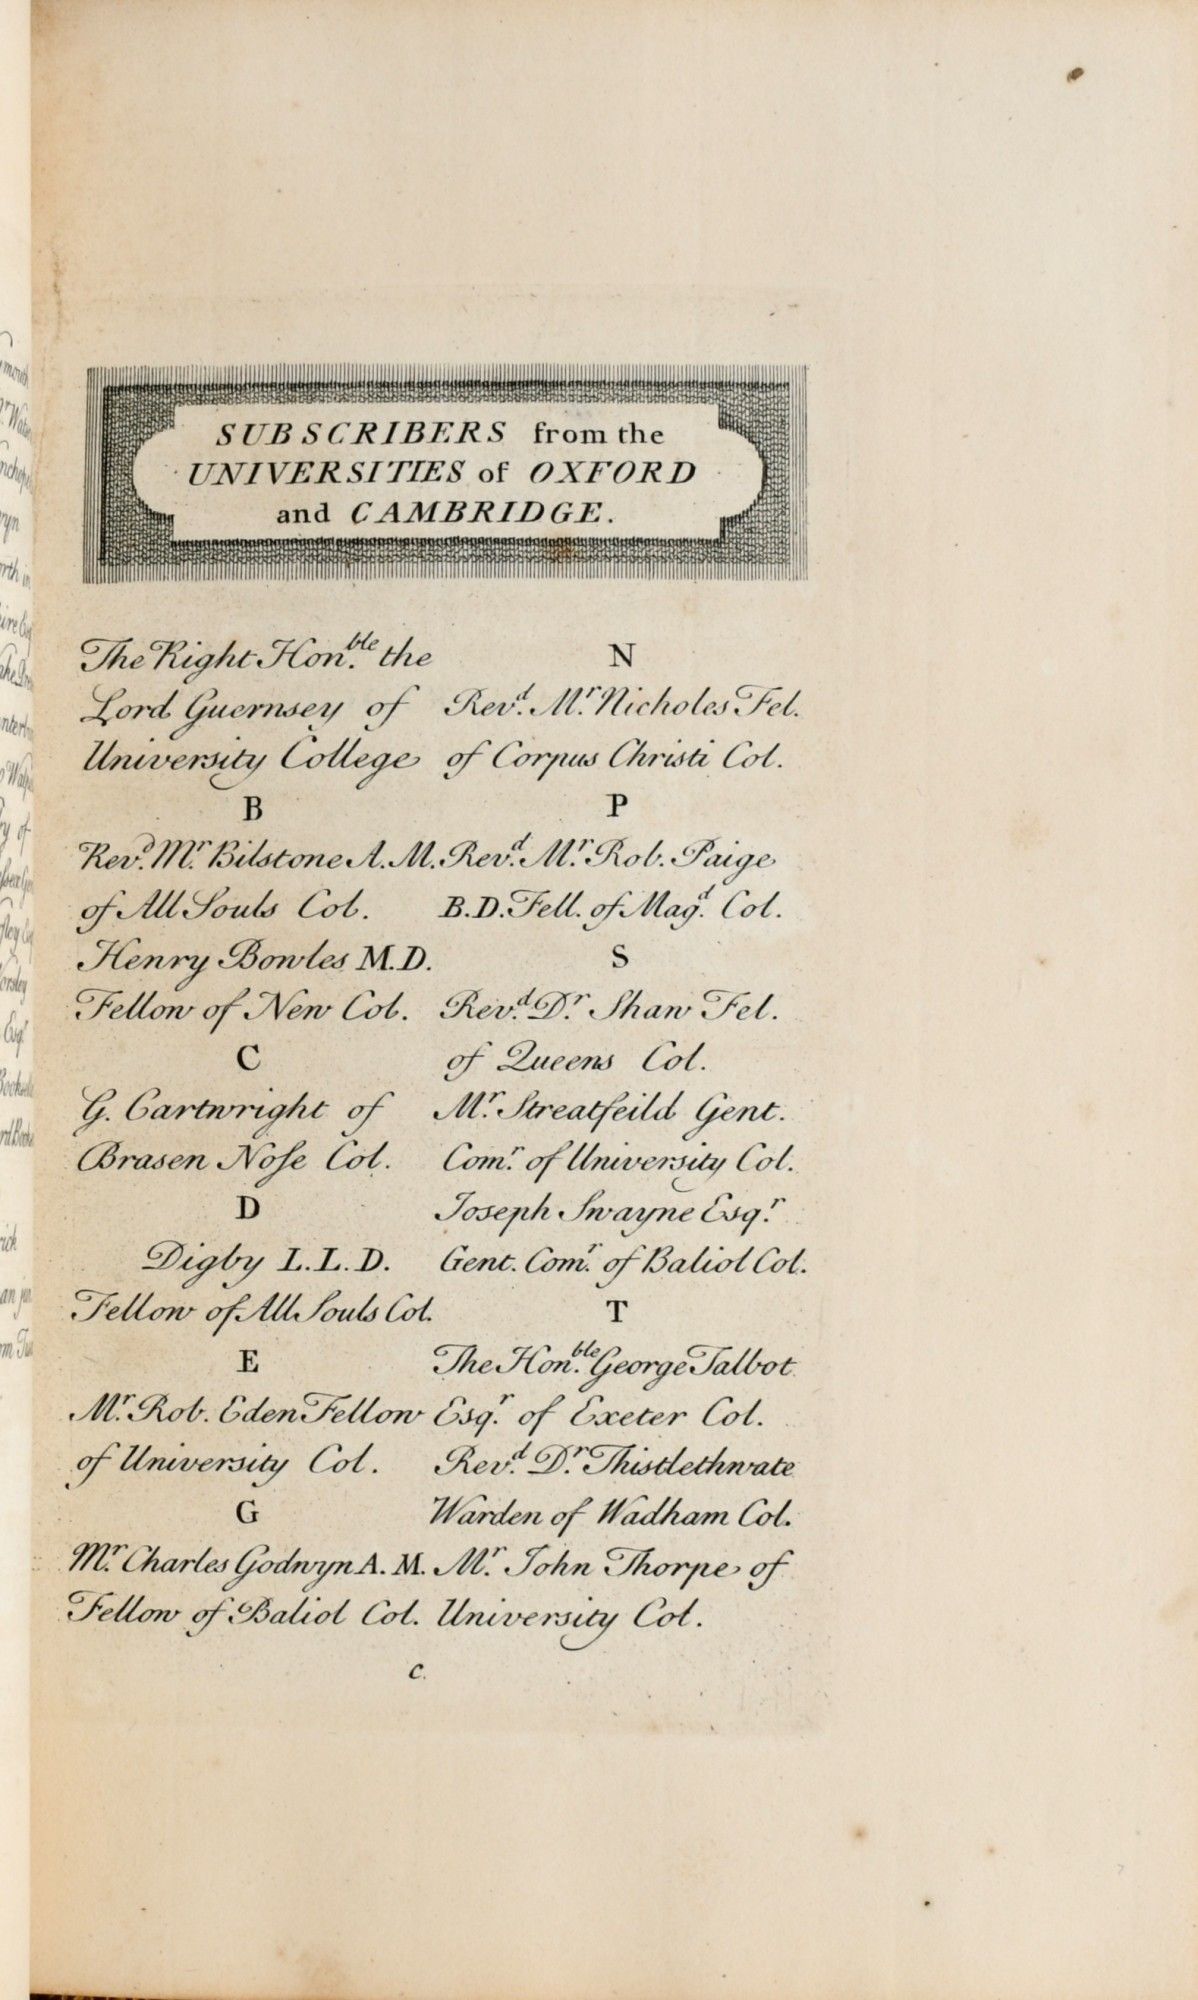 SUBSCRIBERS from the
UNIVERSITIES of OXFORD
and CAMBRIDGE.
The Right Hon.ble the
Lord Guernsey of
University College
B
Revd. Mr. Bilstone A. M.
of All Souls Col.
Henry Bowles M.D.
Fellow of New Col.
C
G. Cartwright of
Brasen Nose Col.
D
Digby L.L.D.
Fellow of All Souls Col.
E
Mr. Rob. Eden Fellow
of University Col.
G
Mr. Charles Godwyn A. M.
Fellow of Baliol Col.
N
Revd. Mr. Nicholes Fel.
of Corpus Christi Col.
P
Revd. Mr. Rob. Paige
B.D. Fell. of Magd. Col.
S
Revd. Dr. Shaw Fel.
of Queens Col.
Mr. Streatfeild Gent.
Comr. of University Col.
Joseph Swayne Esqr.
Gent. Comr. of Baliol Col.
T
The Hon.ble George Talbot
Esqr. of Exeter Col.
Revd. Dr. Thistlethwate
Warden of Wadham Col.
Mr. John Thorpe of
University Col.
c.